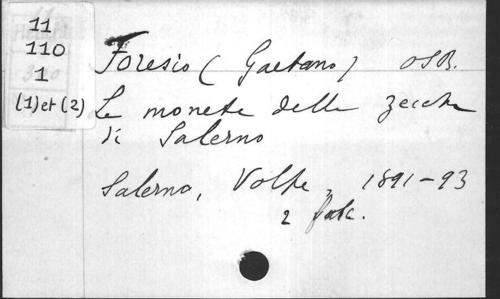 11
110
1
(1) et (2)
Foresio (Gaetano) OSB.
Le monete delle zecche
di Salerno
Salerno, Volpe, 1891-93
2 fasc.